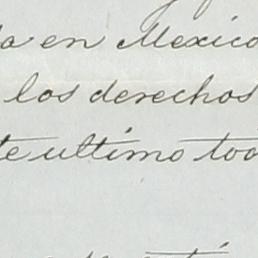 en Mexico
los derechos
te ultimo tod